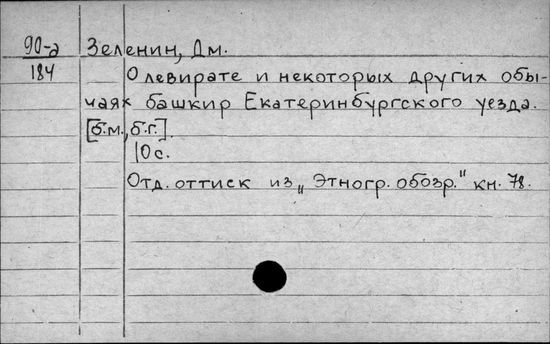 90-д Зеленин, Дм.
184 О левирате и некоторых других обы-
чаях башкир Екатеринбургского уезда.
[б.м., б.г.].
10с.
Отд. оттиск из „Этногр. обозр." кн. 78.